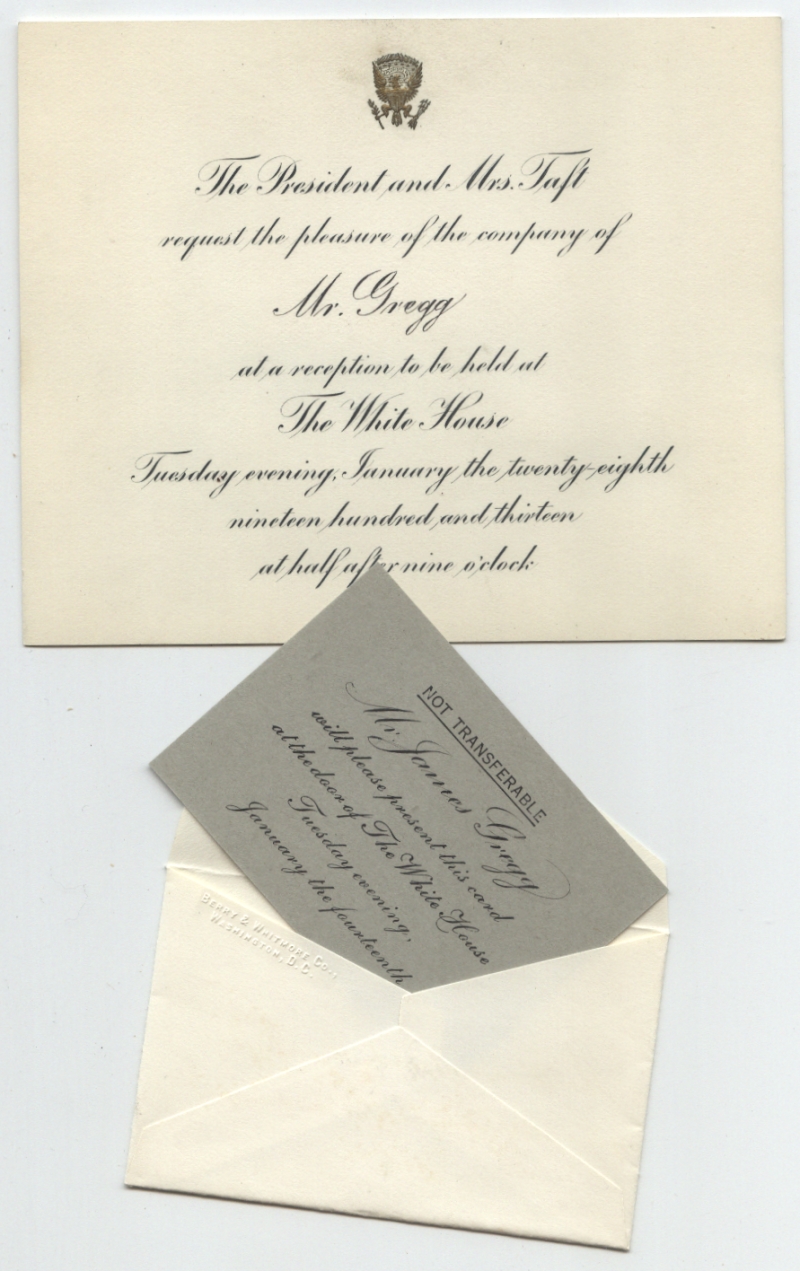 The President and Mrs. Taft
request the pleasure of the company of
Mr. Gregg
at a reception to be held at
The White House
Tuesday evening, January the twenty-eighth
nineteen hundred and thirteen
at half after nine o'clock
NOT TRANSFERABLE
Mr. James Gregg
will please present this card
at the door of The White House
Tuesday evening,
January the fourteenth
BERRY & WHITMORE CO.,
WASHINGTON, D.C.